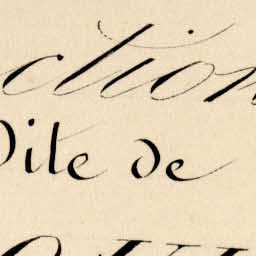 ction
Dite de